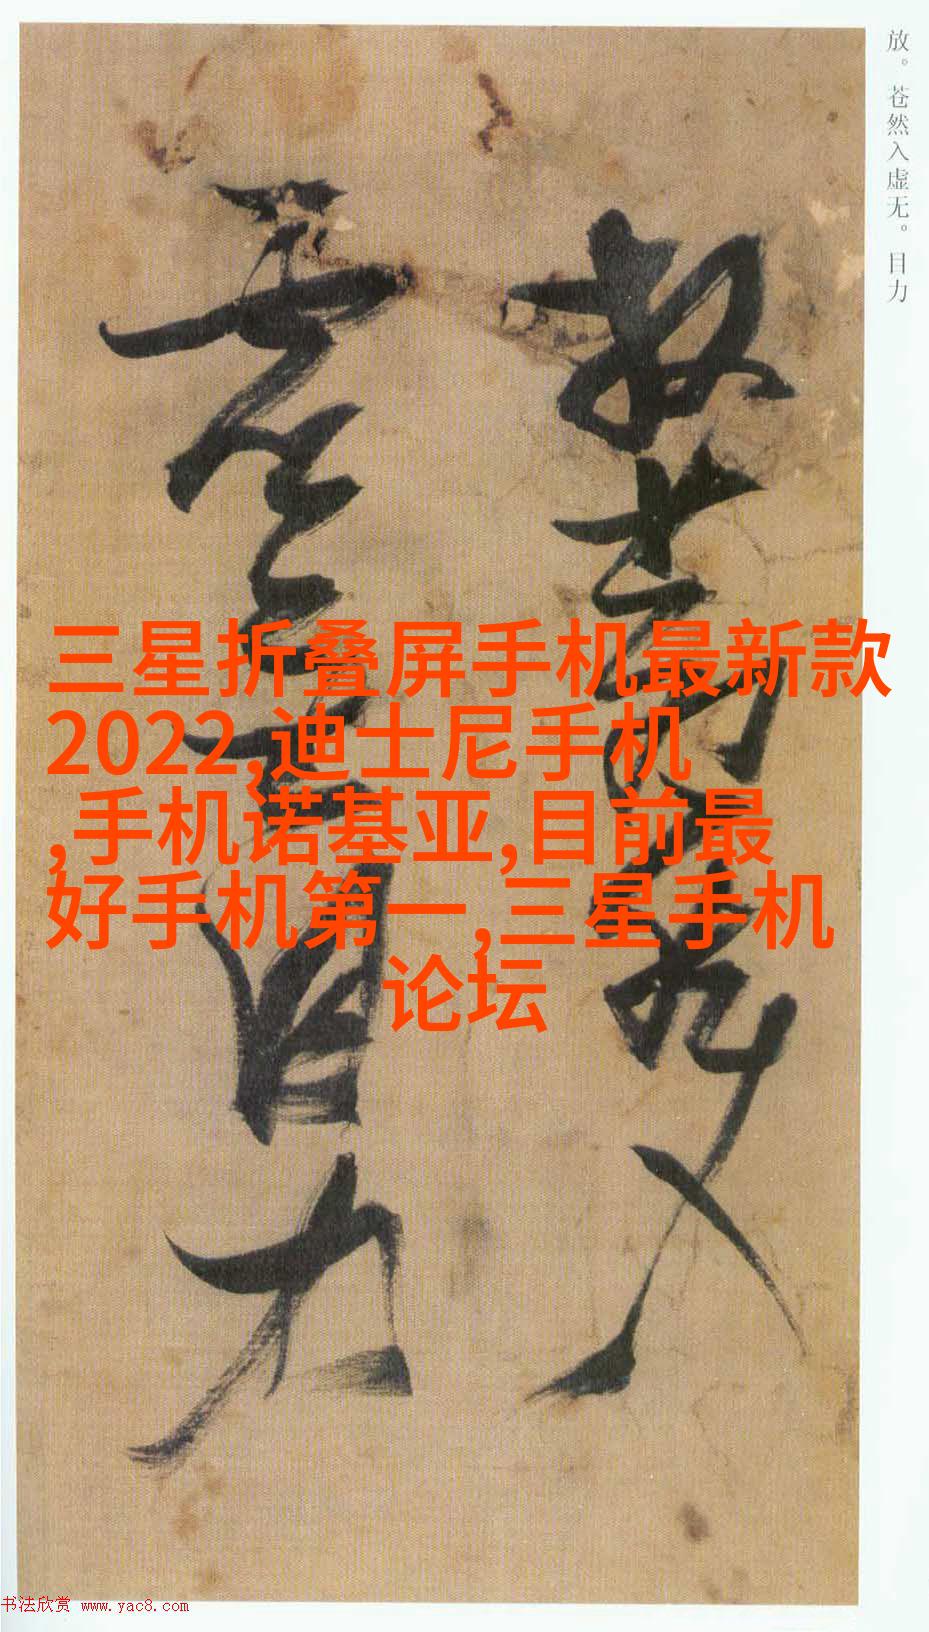 放。苍然入虚无。目力
放苍然入
虚无目力
三星折叠屏手机最新款
2022,迪士尼手机
,手机诺基亚,目前最
好手机第一,三星手机
论坛
书法欣赏 www.yac8.com